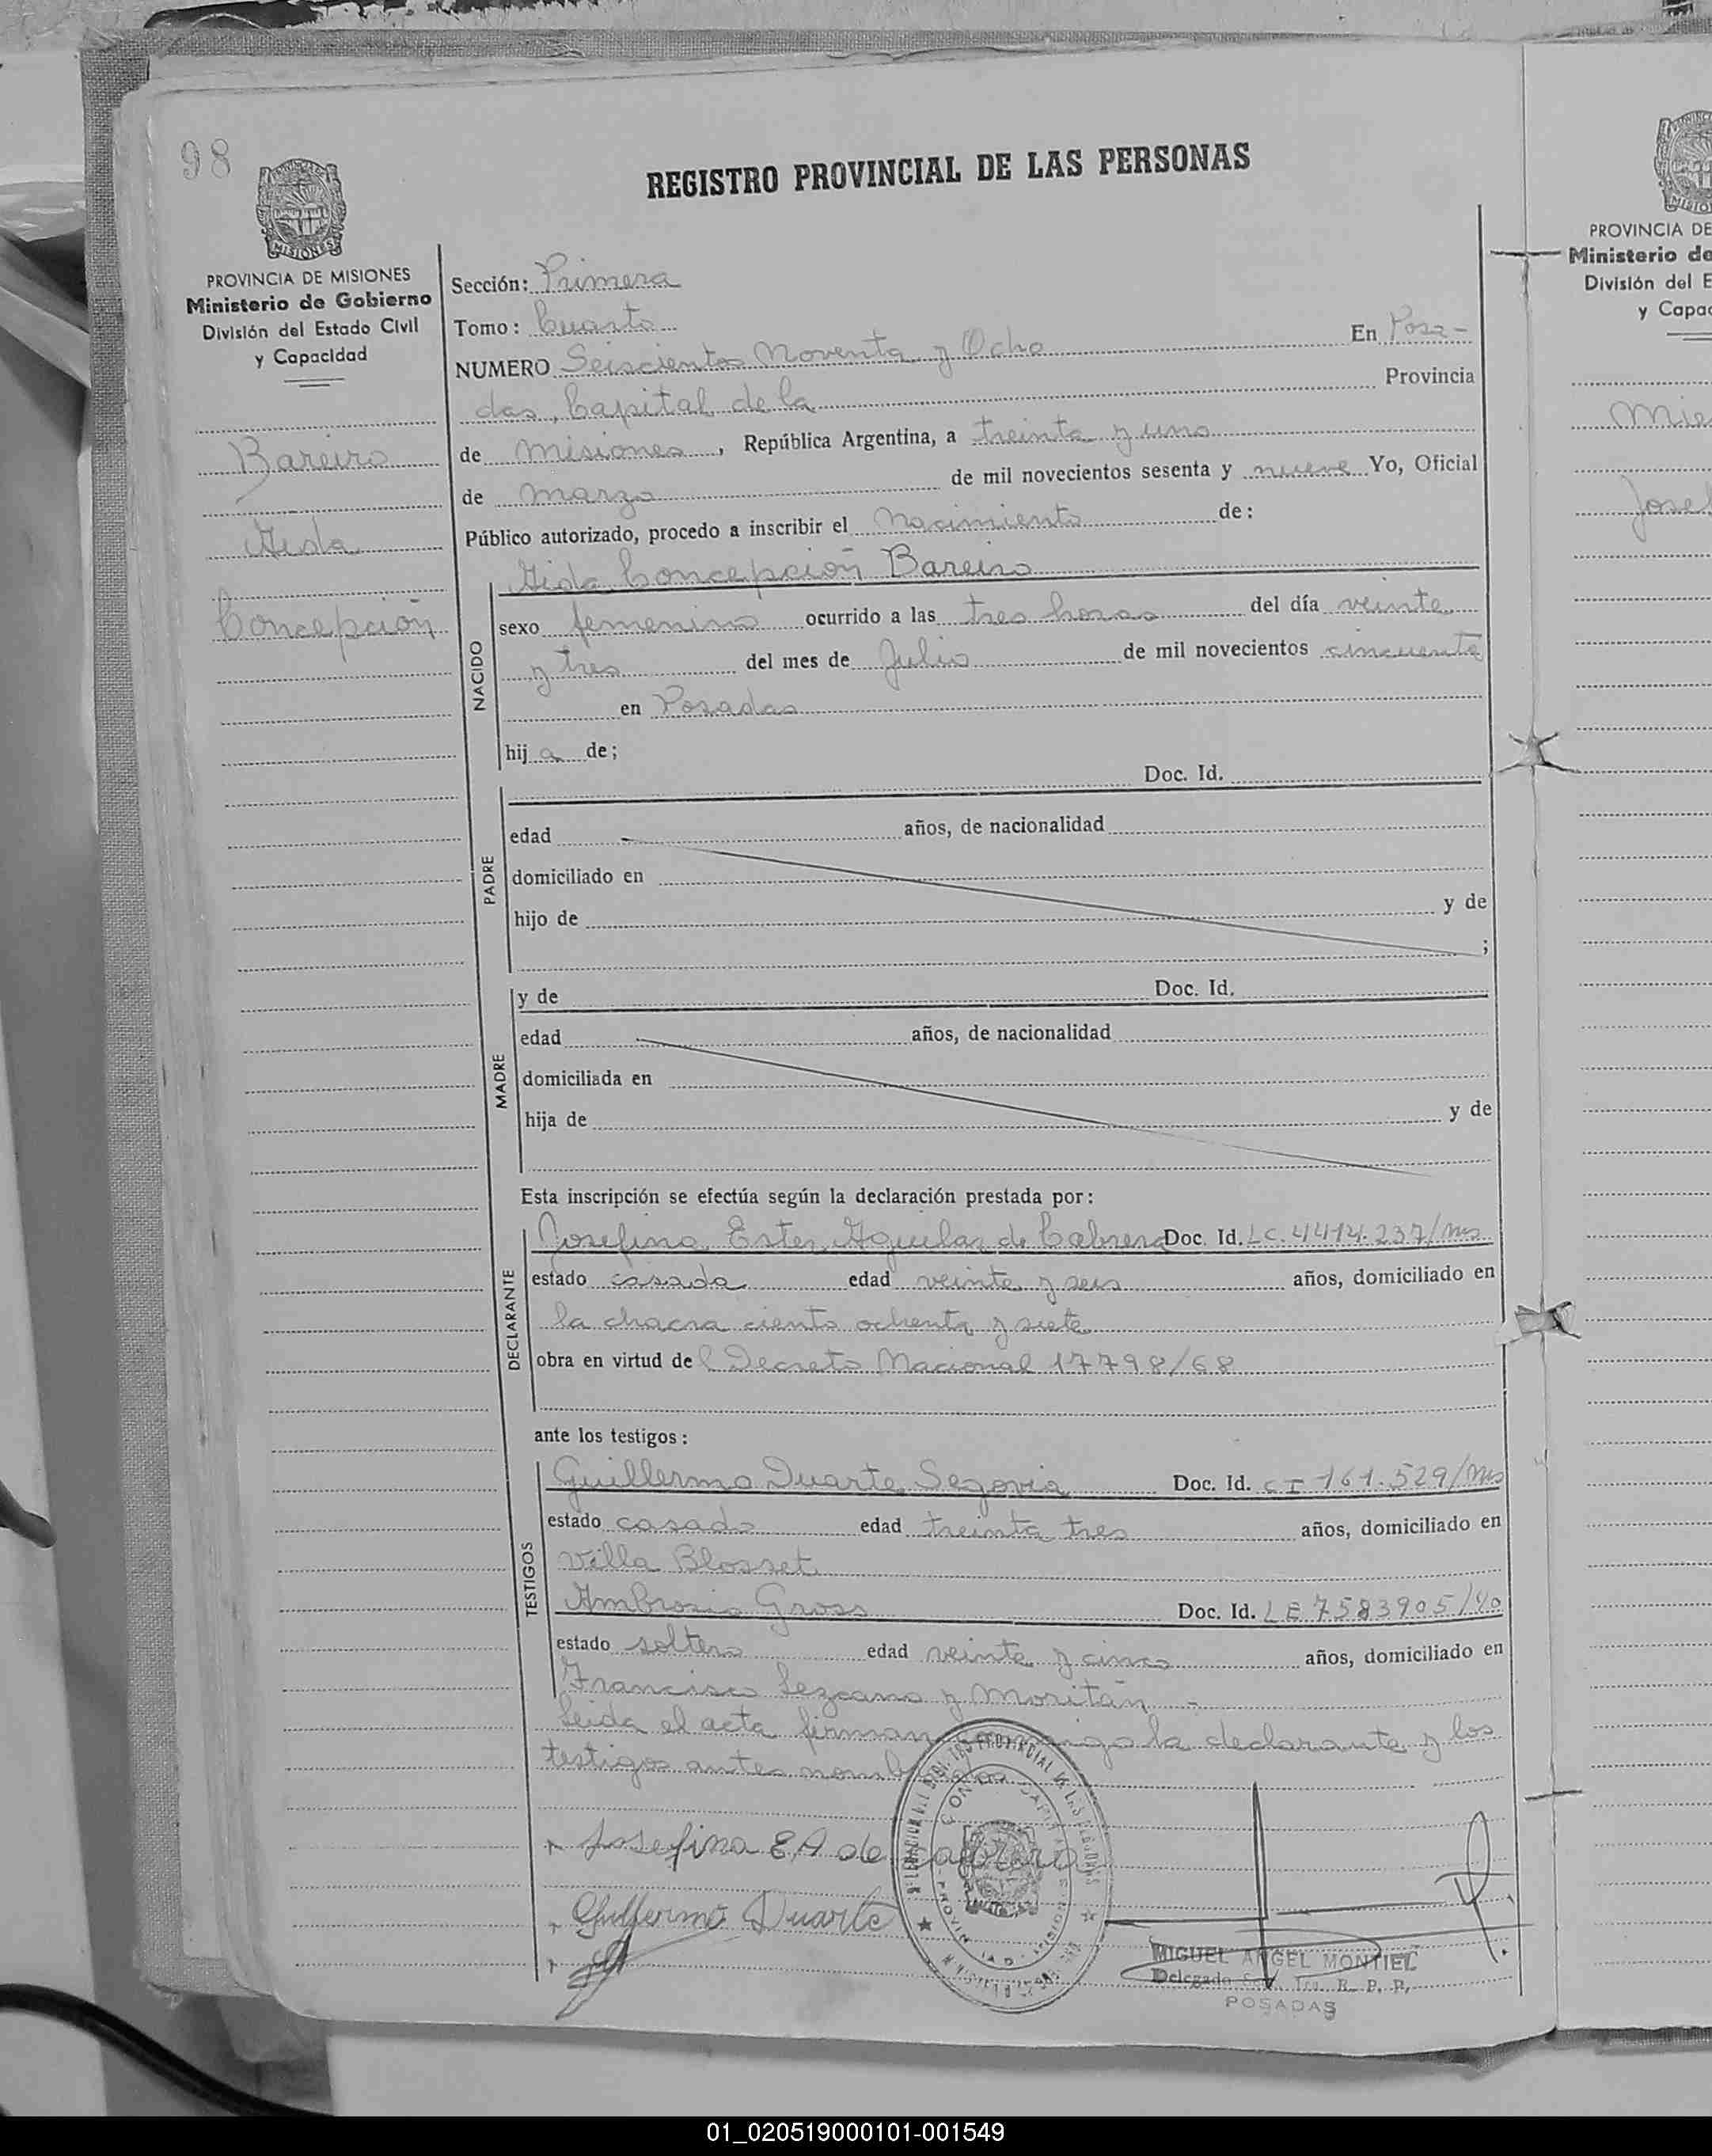 98
REGISTRO PROVINCIAL DE LAS PERSONAS
PROVINCIA DE MISIONES
Ministerio de Gobierno
División del Estado Civil
y Capacidad
Bareiro
Aida
Concepción
Sección: Primera
Tomo: Cuarto
NUMERO Seiscientos Noventa y Ocho En Posa-
das, Capital de la Provincia
de Misiones, República Argentina, a treinta y uno
de marzo de mil novecientos sesenta y nueve Yo, Oficial
Público autorizado, procedo a inscribir el Nacimiento de:
NACIDO
Aida Concepción Bareiro
sexo femenino ocurrido a las tres horas del día veinte
y tres del mes de Julio de mil novecientos cincuenta
en Posadas
hija de;
PADRE
Doc. Id.
edad años, de nacionalidad
domiciliado en
hijo de y de
;
MADRE
y de Doc. Id.
edad años, de nacionalidad
domiciliada en
hija de y de
Esta inscripción se efectúa según la declaración prestada por:
DECLARANTE
Josefina Ester Aguilar de Cabrera Doc. Id. LC. 4414.237/Ms
estado casada edad veinte y seis años, domiciliado en
la chacra ciento ochenta y siete
obra en virtud del Decreto Nacional 17798/68
ante los testigos:
TESTIGOS
Guillermo Duarte Segovia Doc. Id. CI 161.529/Ms
estado casado edad treinta tres años, domiciliado en
Villa Blosset
Ambrosio Gross Doc. Id. LE 7583905/90
estado soltero edad veinte y cinco años, domiciliado en
Francisco Lezcano y Moritán -
Leida el acta firman conmigo la declarante y los
testigos antes nombrados
Josefina E A de Cabrera
Guillermo Duarte
MIGUEL ANGEL MONTIEL
Delegado R. P. P.
POSADAS
PROVINCIA DE
Ministerio de
División del E
y Capac
Mie
Jose
01_020519000101-001549